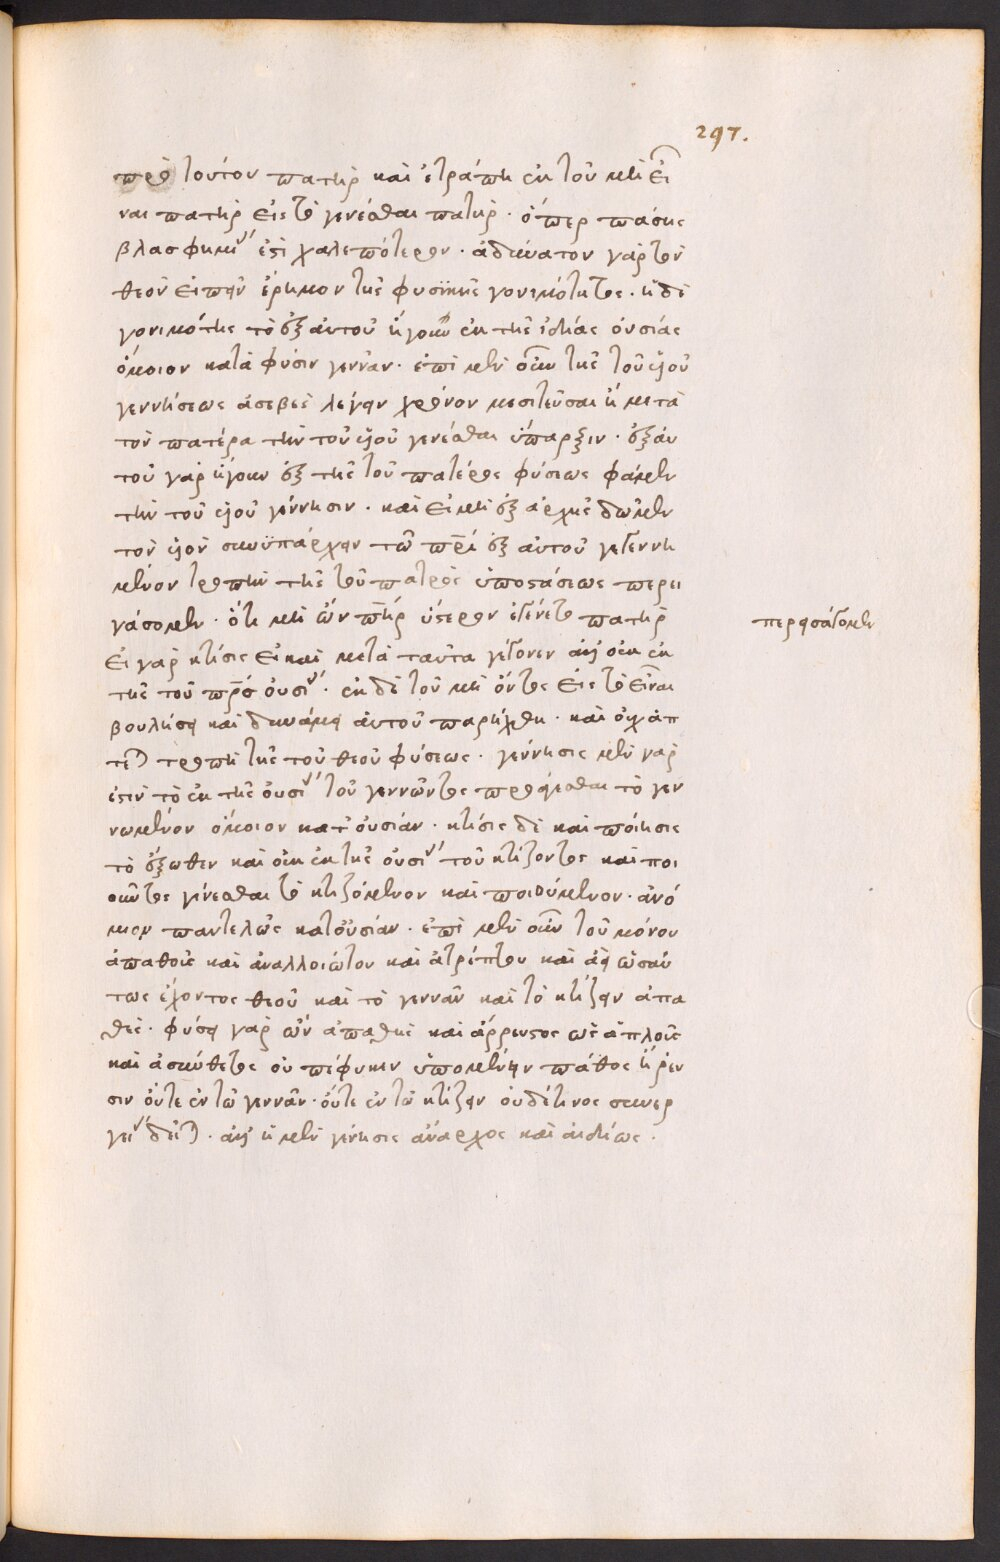 297.
πρὸ τούτου πατὴρ καὶ ἐτράπη ἐκ τοῦ μὴ εἶ
ναι πατὴρ εἰς τὸ γενέσθαι πατὴρ· ὅπερ πάσης
βλασφημίας ἐστὶ χαλεπότερον· ἀδύνατον γὰρ τὸν
θεὸν εἰπεῖν ἔρημον τῆς φυσικῆς γονιμότητος· ἡ δὲ
γονιμότης τὸ ἐξ αὐτοῦ ἤγουν ἐκ τῆς ἰδίας οὐσίας
ὅμοιον κατὰ φύσιν γεννᾶν· ἐπὶ μὲν οὖν τῆς τοῦ υἱοῦ
γεννήσεως ἀσεβὲς λέγειν χρόνον μεσιτεῦσαι ἢ μετὰ
τὸν πατέρα τὴν τοῦ υἱοῦ γενέσθαι ὕπαρξιν· ἐξ αὐ
τοῦ γὰρ ἤγουν ἐξ τῆς τοῦ πατέρος φύσεως φαμὲν
τὴν τοῦ υἱοῦ γέννησιν· καὶ εἰ μὴ ἐξ ἀρχῆς δῶμεν
τὸν υἱὸν συνϋπάρχειν τῶ πρὶ ἐξ αὐτοῦ γεγεννη
μένον τροπὴν τῆς τοῦ πατρὸς ὑποστάσεως περει
γάσομεν· ὅτι μὴ ὢν πατὴρ ὕστερον ἐγένετο πατὴρ
περεισάγομεν
εἰ γὰρ κτίσις εἰ καὶ μετὰ ταῦτα γέγονεν ἀλλ' οὐκ ἐκ
τῆς τοῦ πρς οὐσίας· ἐκ δὲ τοῦ μὴ ὄντος εἰς τὸ εἶναι
βουλήσει καὶ δυνάμει αὐτοῦ παρήχθη· καὶ οὐχ ἅπ
τεται τροπὴ τῆς τοῦ θεοῦ φύσεως· γέννησις μὲν γὰρ
ἐστὶν τὸ ἐκ τῆς οὐσίας τοῦ γεννῶντος προάγεσθαι τὸ γεν
νωμένον ὅμοιον κατ' οὐσίαν· κτίσις δὲ καὶ ποίησις
τὸ ἔξωθεν καὶ οὐκ ἐκ τῆς οὐσίας τοῦ κτίζοντος καὶ ποι
οῦντος γίνεσθαι τὸ κτιζόμενον καὶ ποιούμενον· ἀνό
μοιον παντελῶς κατ' οὐσίαν· ἐπὶ μὲν οὖν τοῦ μόνου
ἀπαθοῦς καὶ ἀναλλοιώτου καὶ ἀτρέπτου καὶ ἀεὶ ὡσαύ
τως ἔχοντος θεοῦ καὶ τὸ γεννᾶν καὶ τὸ κτίζειν ἀπα
θὲς· φύσει γὰρ ὢν ἀπαθὴς καὶ ἄρρευστος ὡς ἁπλοῦς
καὶ ἀσύνθετος οὐ πέφυκεν ὑπομένειν πάθος ἢ ῥεῦ
σιν οὔτε ἐν τῶ γεννᾶν· οὔτε ἐν τῶ κτίζειν οὐδέ τινος συνερ
γείας δεῖται· ἀλλ' ἡ μὲν γέννησις ἄναρχος καὶ ἀιδίως·